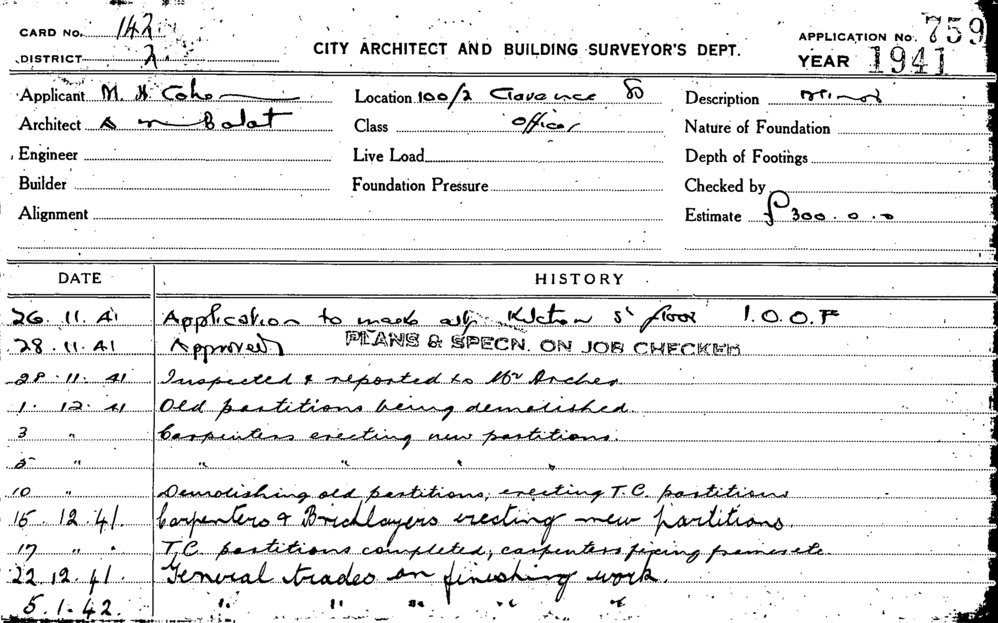 CARD NO. 142
DISTRICT 2
CITY ARCHITECT AND BUILDING SURVEYOR'S DEPT.
APPLICATION No. 759
YEAR 1941
Applicant M. H Cohen
Location 100/2 Clarence St
Description Minor
Architect
Class Offices
Nature of Foundation
Engineer
Live Load
Depth of Footings
Builder
Foundation Pressure
Checked by
Alignment
Estimate £300.0.0
DATE HISTORY
26. 11. 41 Application to make floor I.O.O.F
28. 11. 41 Approved PLANS & SPECN. ON JOB CHECKED
28. 11. 41 Inspected & reported to Mr Archer
1. 12. 41 Old partitions being demolished.
3 " Carpenters erecting new partitions.
5 " " " " "
10 " Demolishing old partitions, erecting T.C. partitions
15. 12. 41. Carpenters & Bricklayers erecting new partitions.
17 " " T.C. partitions completed, carpenters fixing frames etc.
22.12.41. General trades on finishing work.
5.1.42. " " " " "